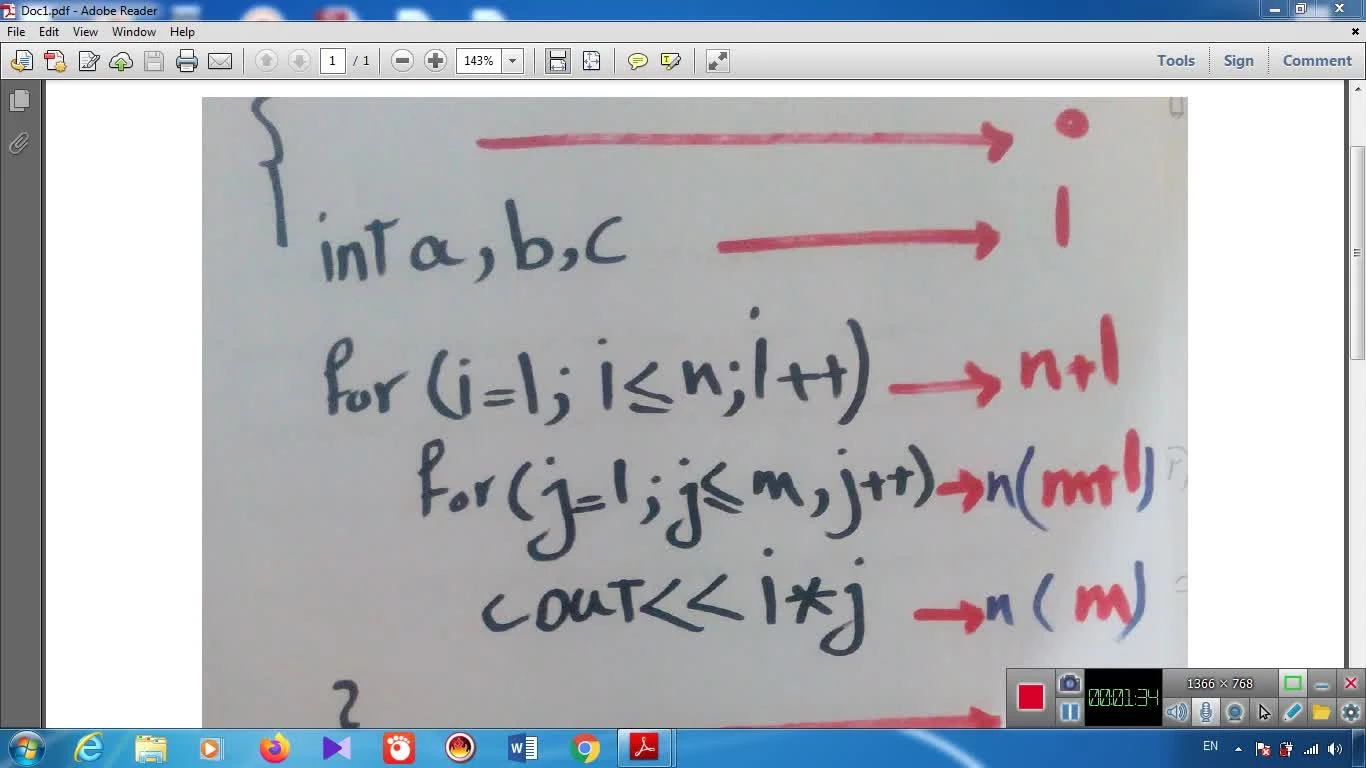 Doc1.pdf - Adobe Reader
File Edit View Window Help
1 / 1 143% Tools Sign Comment
{ 0
int a, b, c 1
for (i=1; i≤n; i++) n+1
for (j=1; j≤m, j++) n(m+1)
cout<< i*j n(m)
1366 × 768
00:01:34
EN